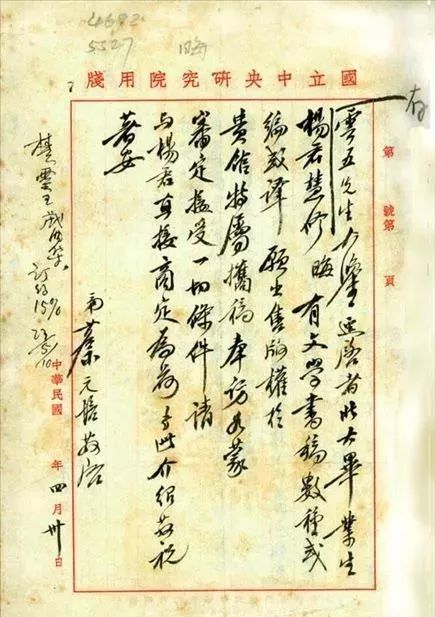 4682
5327
晦
國立中央研究院用牋
存
第 號第 頁
雲五先生大鑒逕啓者北大畢業生
楊君慧修 晦 有文學書稿數種或
編或譯願出售版權於
貴館特屬攜稿奉訪如蒙
審定接受一切條件請
与楊君直接商定為荷專此介紹敬祝
著安
弟蔡元培敬啓
中華民國 年四月卅日
楚靈王
訂約15%